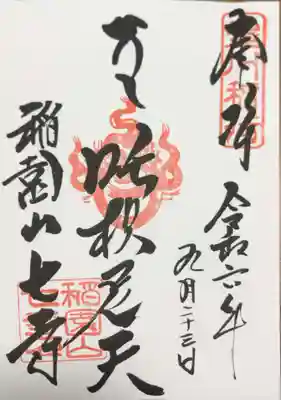 奉拝
令和六年
九月二十三日
吒枳尼天
稲園山七寺
稲園山